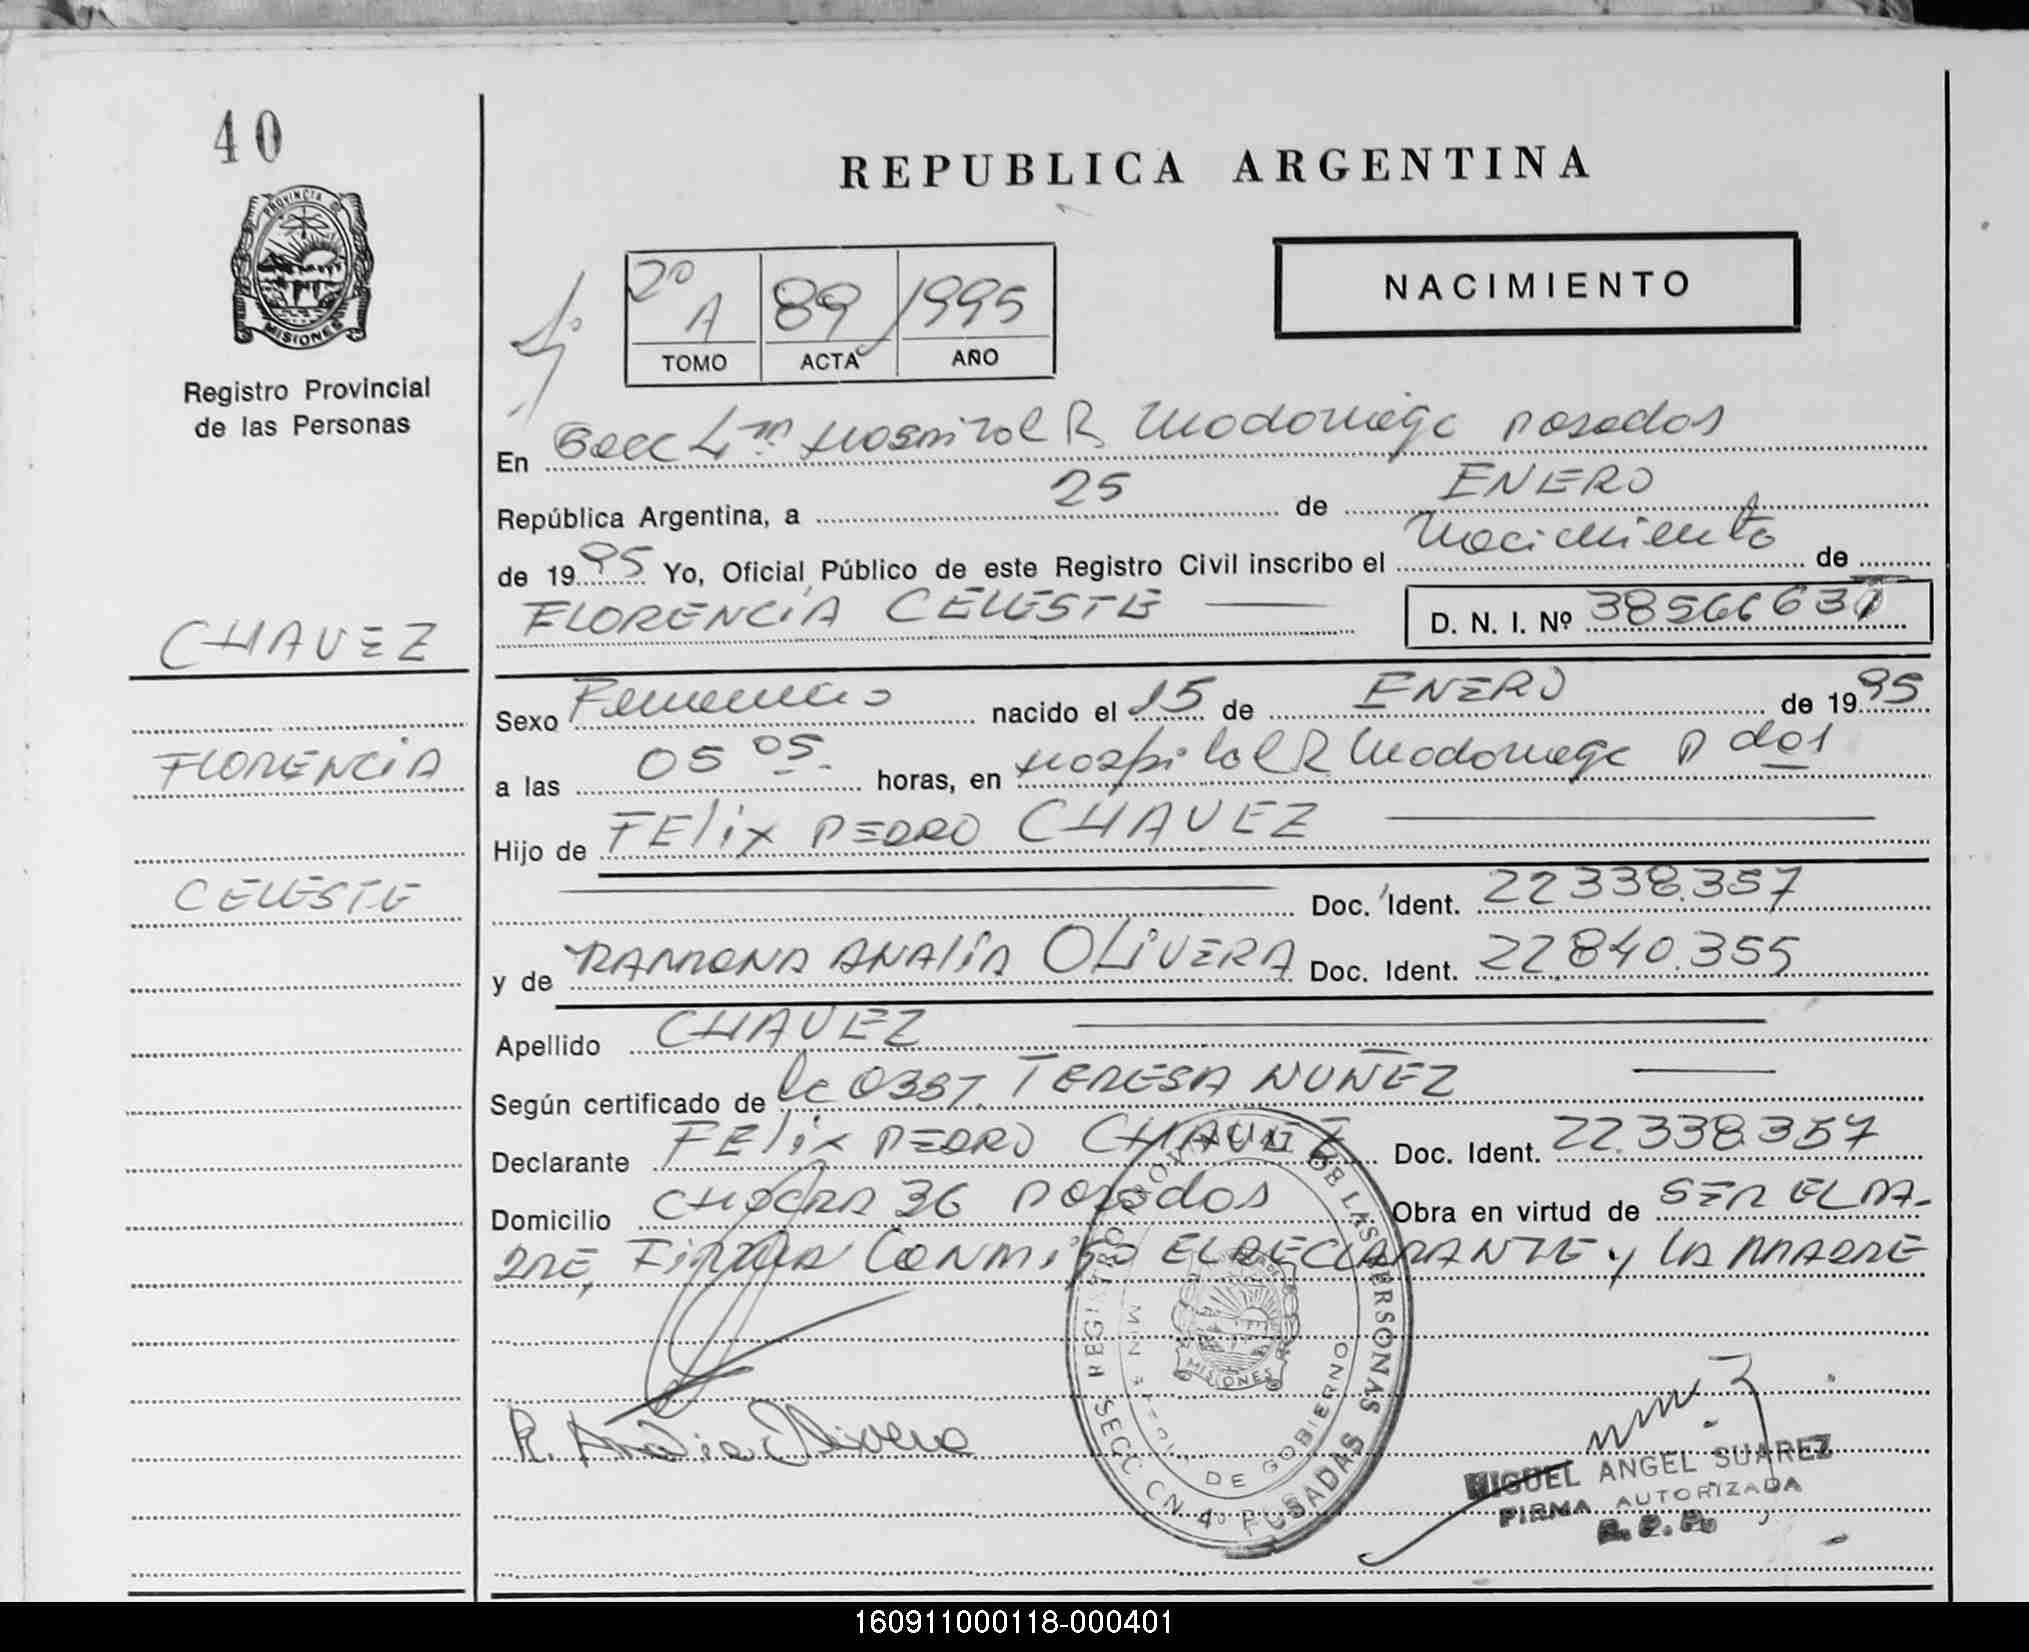 40
PROVINCIA D
MISIONES
Registro Provincial
de las Personas
REPUBLICA ARGENTINA
2º A 89 1995
TOMO ACTA AÑO
NACIMIENTO
En Secc 4ta Hospital R Madariaga Posadas
República Argentina, a 25 de ENERO
de 1995 Yo, Oficial Público de este Registro Civil inscribo el Nacimiento de
FLORENCIA CELESTE
D. N. I. Nº 38566637
CHAVEZ
FLORENCIA
CELESTE
Sexo Femenino nacido el 15 de ENERO de 1995
a las 05 05 horas, en Hospital R Madariaga P das
Hijo de FElix PEDRO CHAVEZ
Doc. Ident. 22.338.357
y de RAMONA ANAlíA OLIVERA Doc. Ident. 22.840.355
Apellido CHAVEZ
Según certificado de TERESA NUÑEZ
Declarante FElix PEDRO CHAVEZ Doc. Ident. 22.338.357
Domicilio CHACRA 36 Posadas Obra en virtud de SER EL PA-
DRE, FIRMA CONMIGO EL DECLARANTE y LA MADRE
REGISTRO PROVINCIAL DE LAS PERSONAS
SECC CN 4º POSADAS
DE GOBIERNO
MISIONES
R. Analia Olivera
MIGUEL ANGEL SUAREZ
FIRMA AUTORIZADA
R. P. P.
160911000118-000401